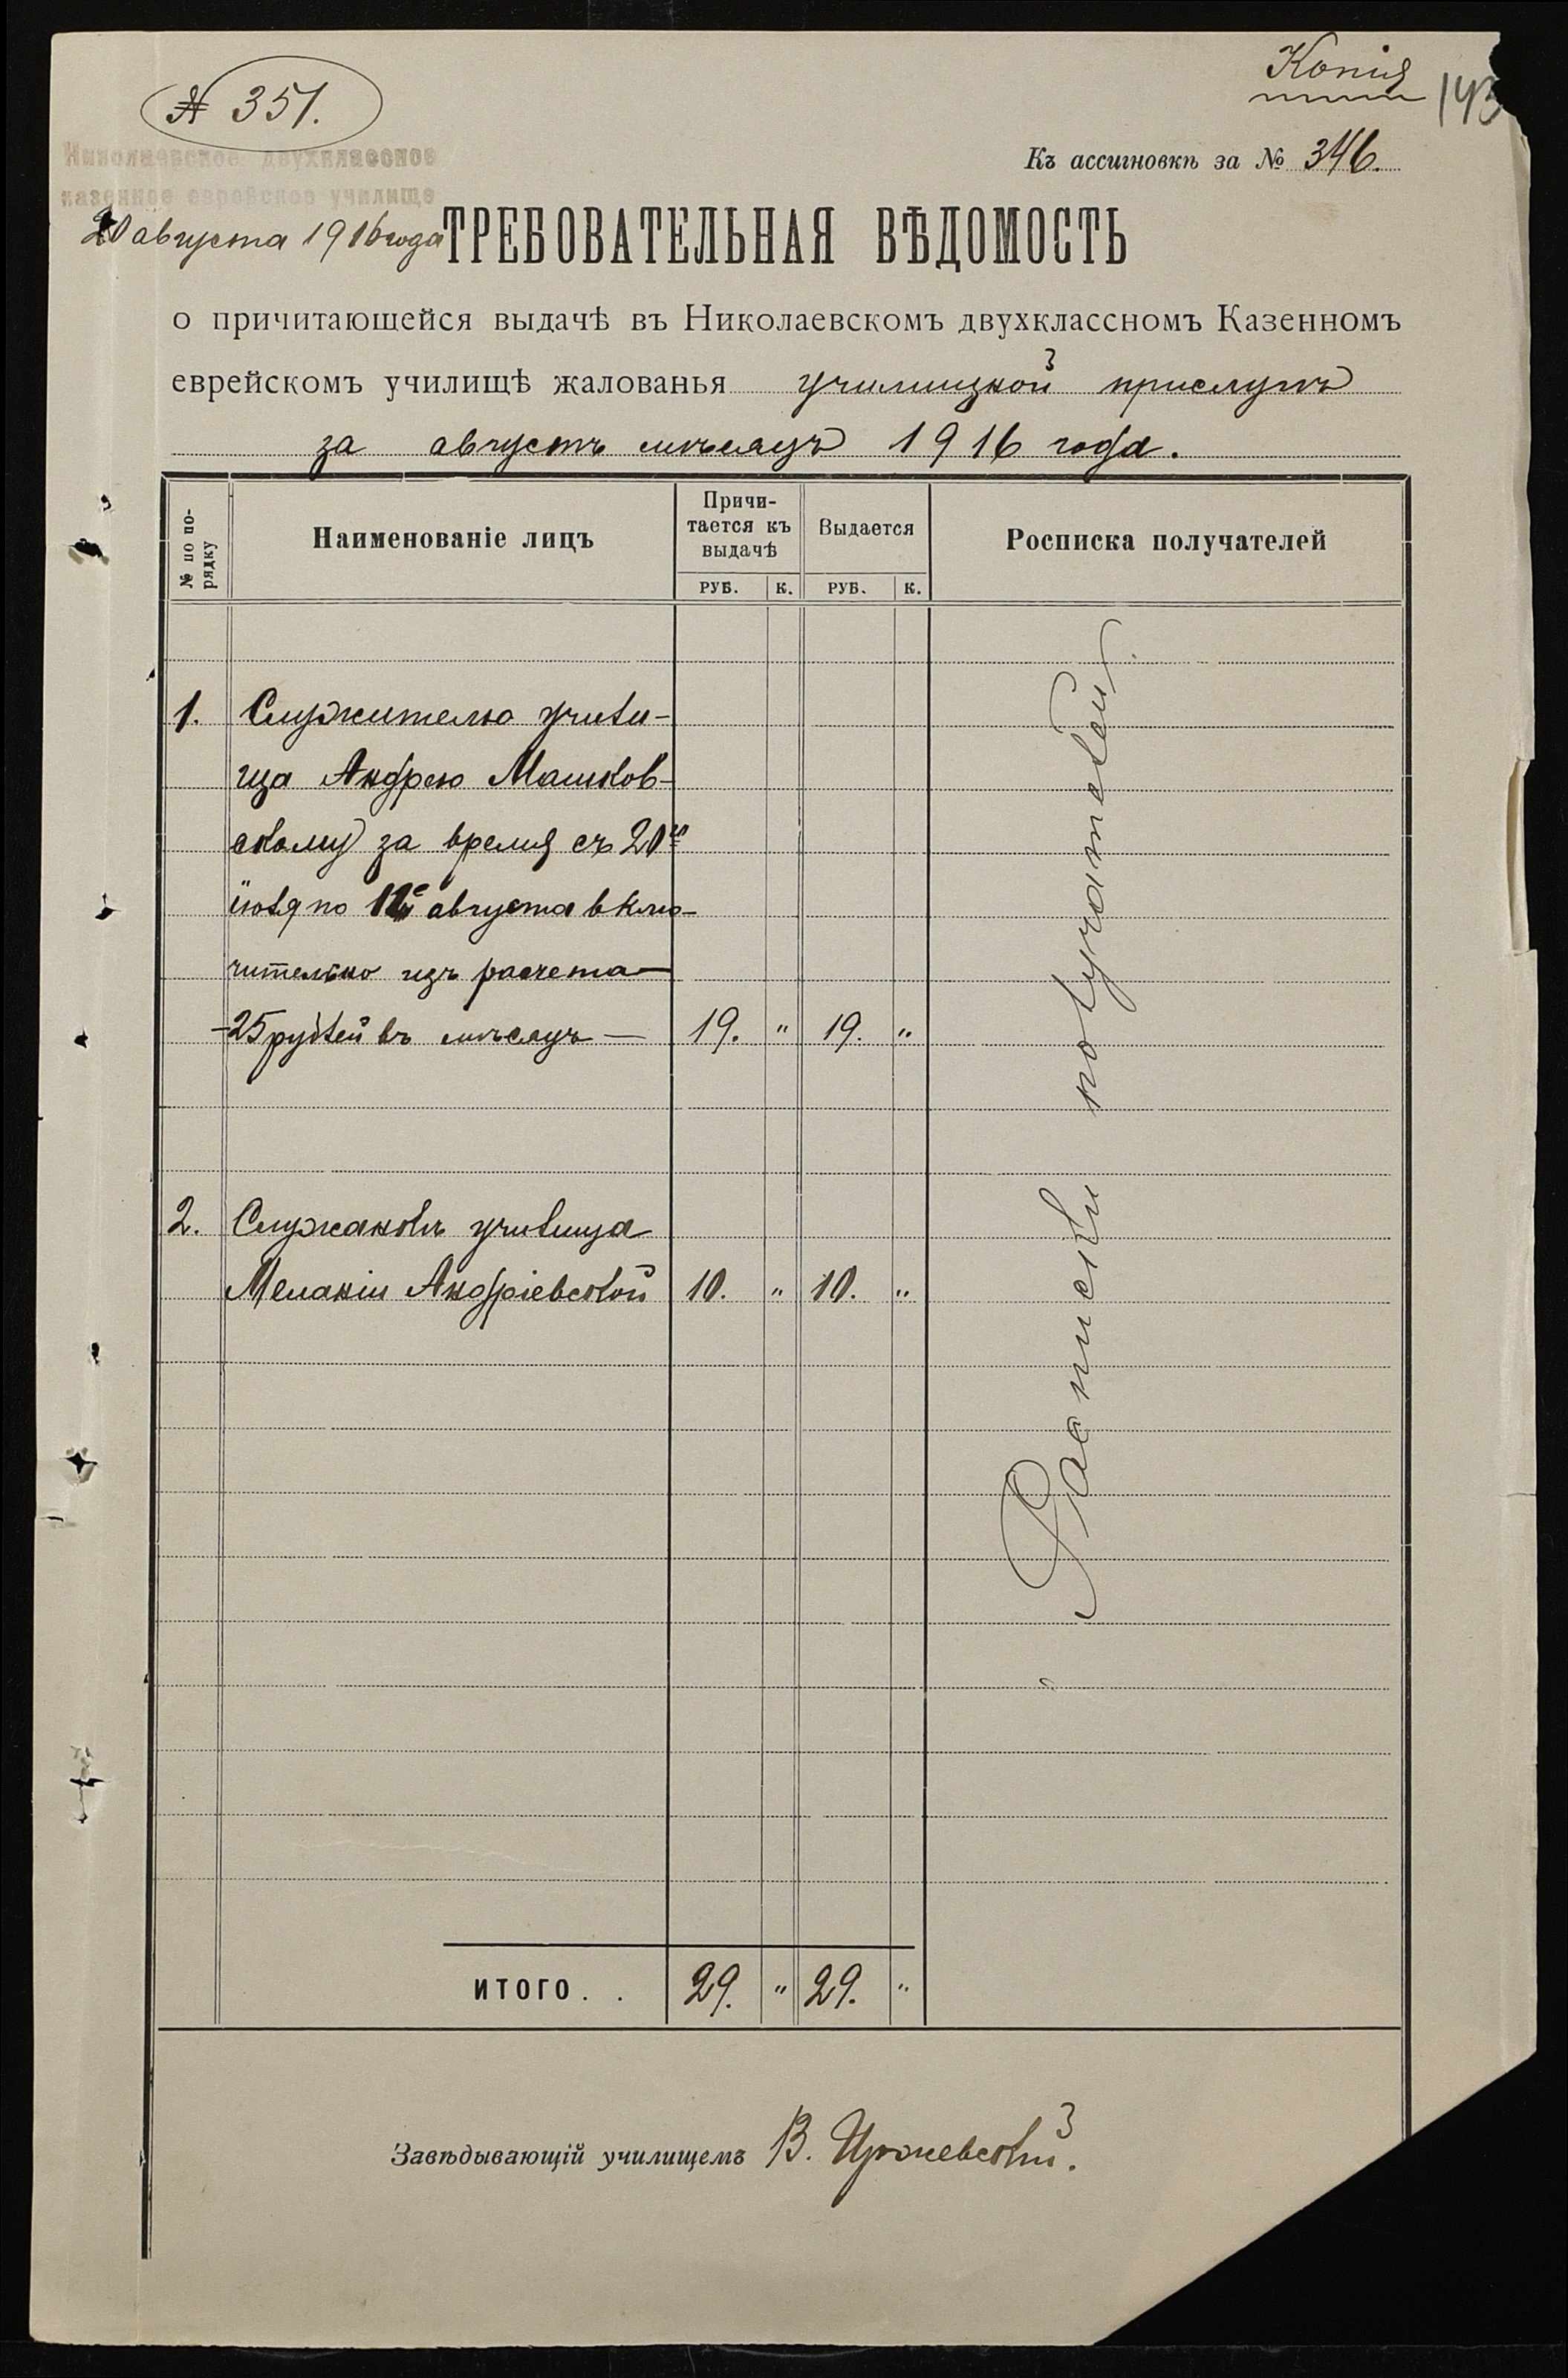 Копія
143
№ 351.
Къ ассигновкѣ за № 346.
Николаевское двухклассное
казенное еврейское училище
20 августа 1916 года
ТРЕБОВАТЕЛЬНАЯ ВѢДОМОСТЬ
о причитающейся выдачѣ въ Николаевскомъ двухклассномъ Казенномъ
еврейскомъ училищѣ жалованья училищной прислугѣ
за августъ мѣсяцъ 1916 года.
№ по по-
рядку
Наименованіе лицъ
Причи-
тается къ
выдачѣ
Выдается
Росписка получателей
РУБ. К. РУБ. К.
1. Служителю учили-
ща Андрею Машков-
скому за время съ 20го
іюля по 12е августа вклю-
чительно изъ расчета
25 рублей въ мѣсяцъ — 19. " 19. "
2. Служанкѣ училища
Меланіи Андріевской 10. " 10. "
Расписки получателей.
ИТОГО. . 29. " 29. "
Завѣдывающій училищемъ В.